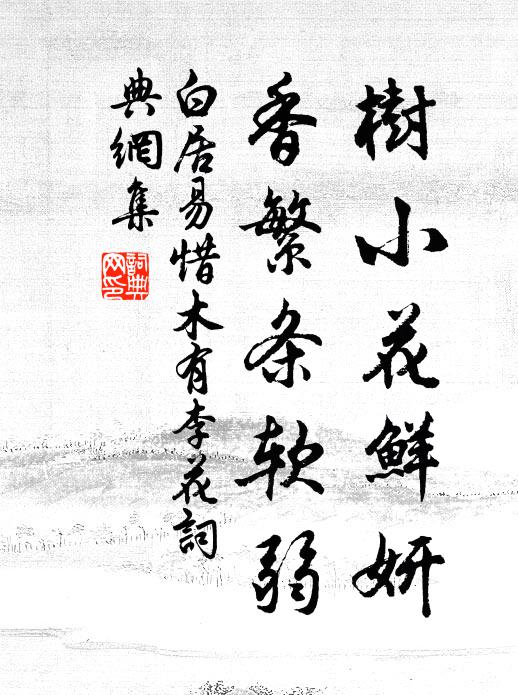 樹小花鮮妍
香繁条软弱
白居易惜木有李花詞
典網集
詞典网印